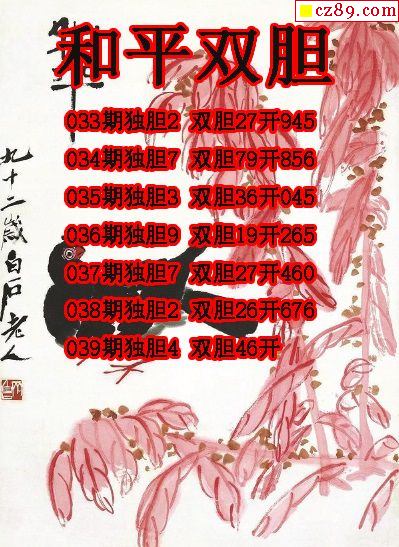 cz89.com
和平双胆
033期独胆2 双胆27开945
034期独胆7 双胆79开856
035期独胆3 双胆36开045
036期独胆9 双胆19开265
037期独胆7 双胆27开460
038期独胆2 双胆26开676
039期独胆4 双胆46开
九十二歲白石老人